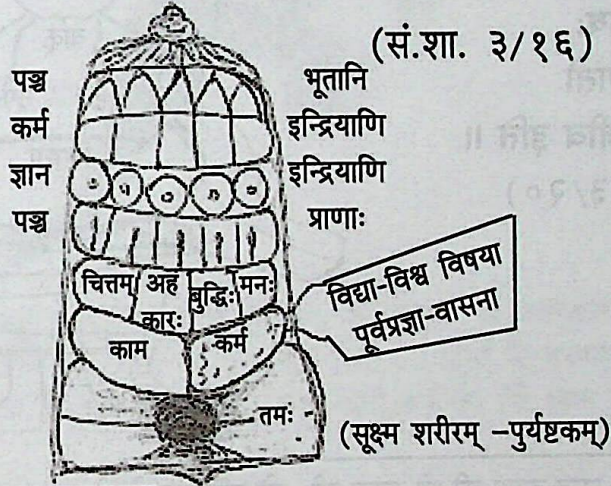 (सं.शा. ३/१६)
पञ्च भूतानि
कर्म इन्द्रियाणि
ज्ञान इन्द्रियाणि
पञ्च प्राणाः
चित्तम् अहं कारः बुद्धिः मनः
विद्या-विश्व विषया
पूर्वप्रज्ञा-वासना
काम कर्म
तमः
(सूक्ष्म शरीरम् -पुर्यष्टकम्)